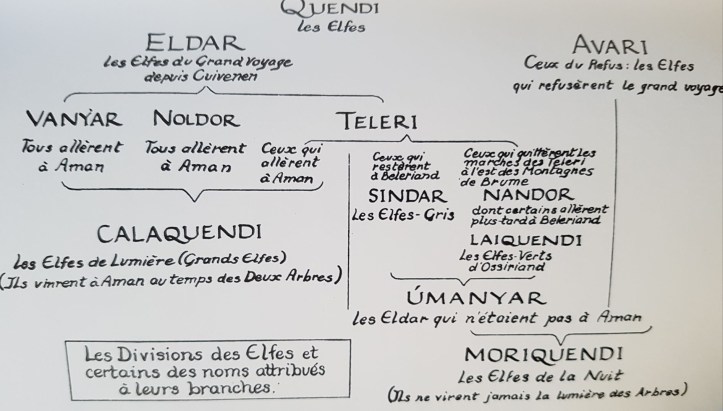 QUENDI
les Elfes
ELDAR
Les Elfes du Grand Voyage
depuis Cuivenen
AVARI
Ceux du Refus: les Elfes
qui refusèrent le grand voyage
VANYAR
Tous allèrent
à Aman
NOLDOR
Tous allèrent
à Aman
TELERI
Ceux qui
allèrent
à Aman
Ceux qui
restèrent
à Beleriand
SINDAR
Les Elfes-Gris
Ceux qui quittèrent les
marches des Teleri
à l'est des Montagnes
de Brume
NANDOR
dont certains allèrent
plus tard à Beleriand
LAIQUENDI
Les Elfes-Verts
d'Ossiriand
CALAQUENDI
Les Elfes de Lumière (Grands Elfes)
(Ils vinrent à Aman au temps des Deux Arbres)
ÚMANYAR
Les Eldar qui n'étaient pas à Aman
MORIQUENDI
Les Elfes de la Nuit
(Ils ne virent jamais la lumière des Arbres)
Les Divisions des Elfes et
certains des noms attribués
à leurs branches.